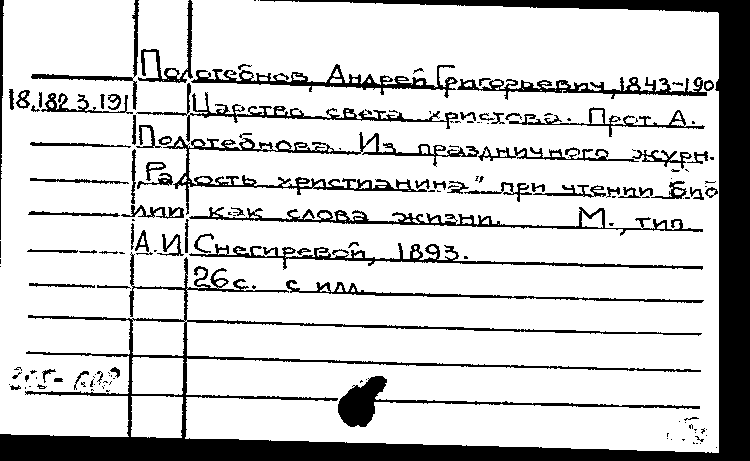 Полотебнов, Андрей Григорьевич, 1843-190
18.182.3.191 Царство света христова. Прот. А.
Полотебнова. Из праздничного журн.
"Радость христианина" при чтении Биб
лии как слова жизни. М., тип.
А.И Снегиревой, 1893.
26с. с илл.